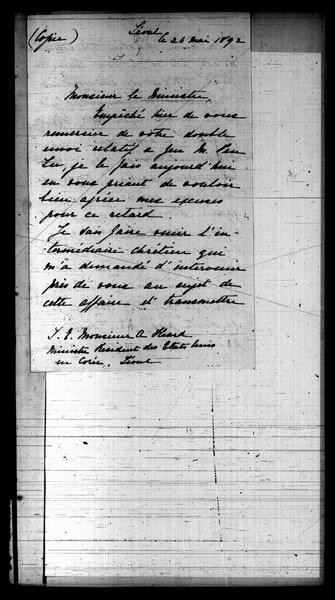 (Copie)
Séoul
le 26 mai 1892
Monsieur le Ministre,
Empêché hier de vous
remercier de votre double
envoi relatif a feu M.
je le fais aujourd'hui
en vous priant de vouloir
bien agréer mes excuses
pour ce retard
Je vais faire venir l'in-
termédiaire chrétien qui
m'a demandé d'intervenir
près de vous au sujet de
cette affaire et transmettre
S. E. Monsieur A Heard
Ministre Résident des Etats Unis
en Corée, Séoul